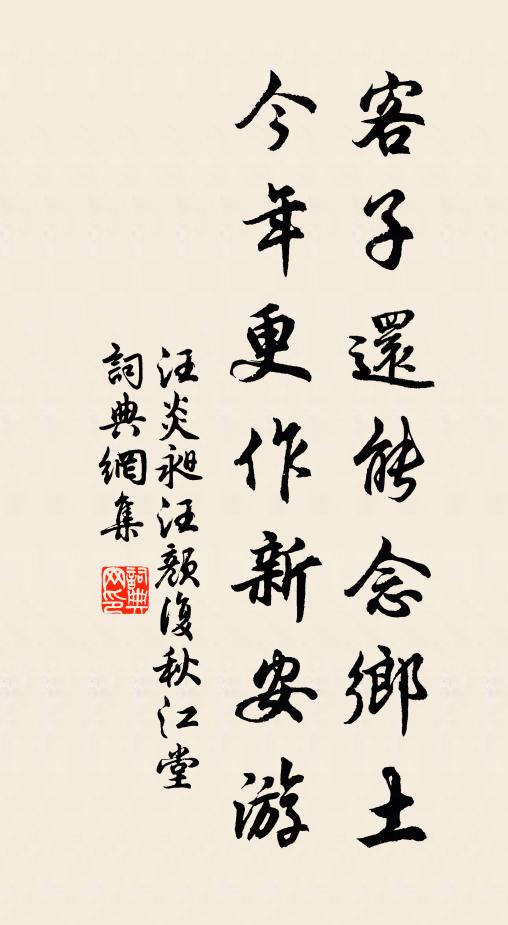 客子還能念鄉土
今年更作新安游
汪炎昶汪顏復秋江堂
詞典網集
詞典網印